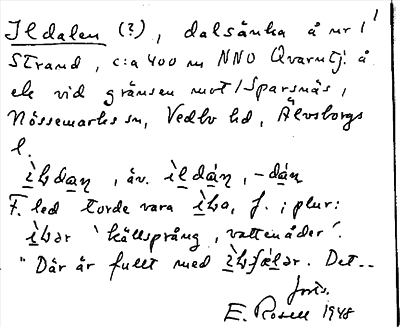 Ildalen (?), dalsänka å nr 1
Strand, c:a 400 m NNO Qvarntj. å
ek vid gränsen mot 1 Sparsnäs,
Nössemarks sn, Vedbo hd, Älvsborgs
l.
ìḷdaṇ, äv. ìldáṇ, -dáṇ
F. led torde vara ìḷa, f. ; plur:
ìḷər ‛källsprång, vattenåder’.
"Där är fullt med ìḷfælər. Det..
forts.
E. Rosell 1948